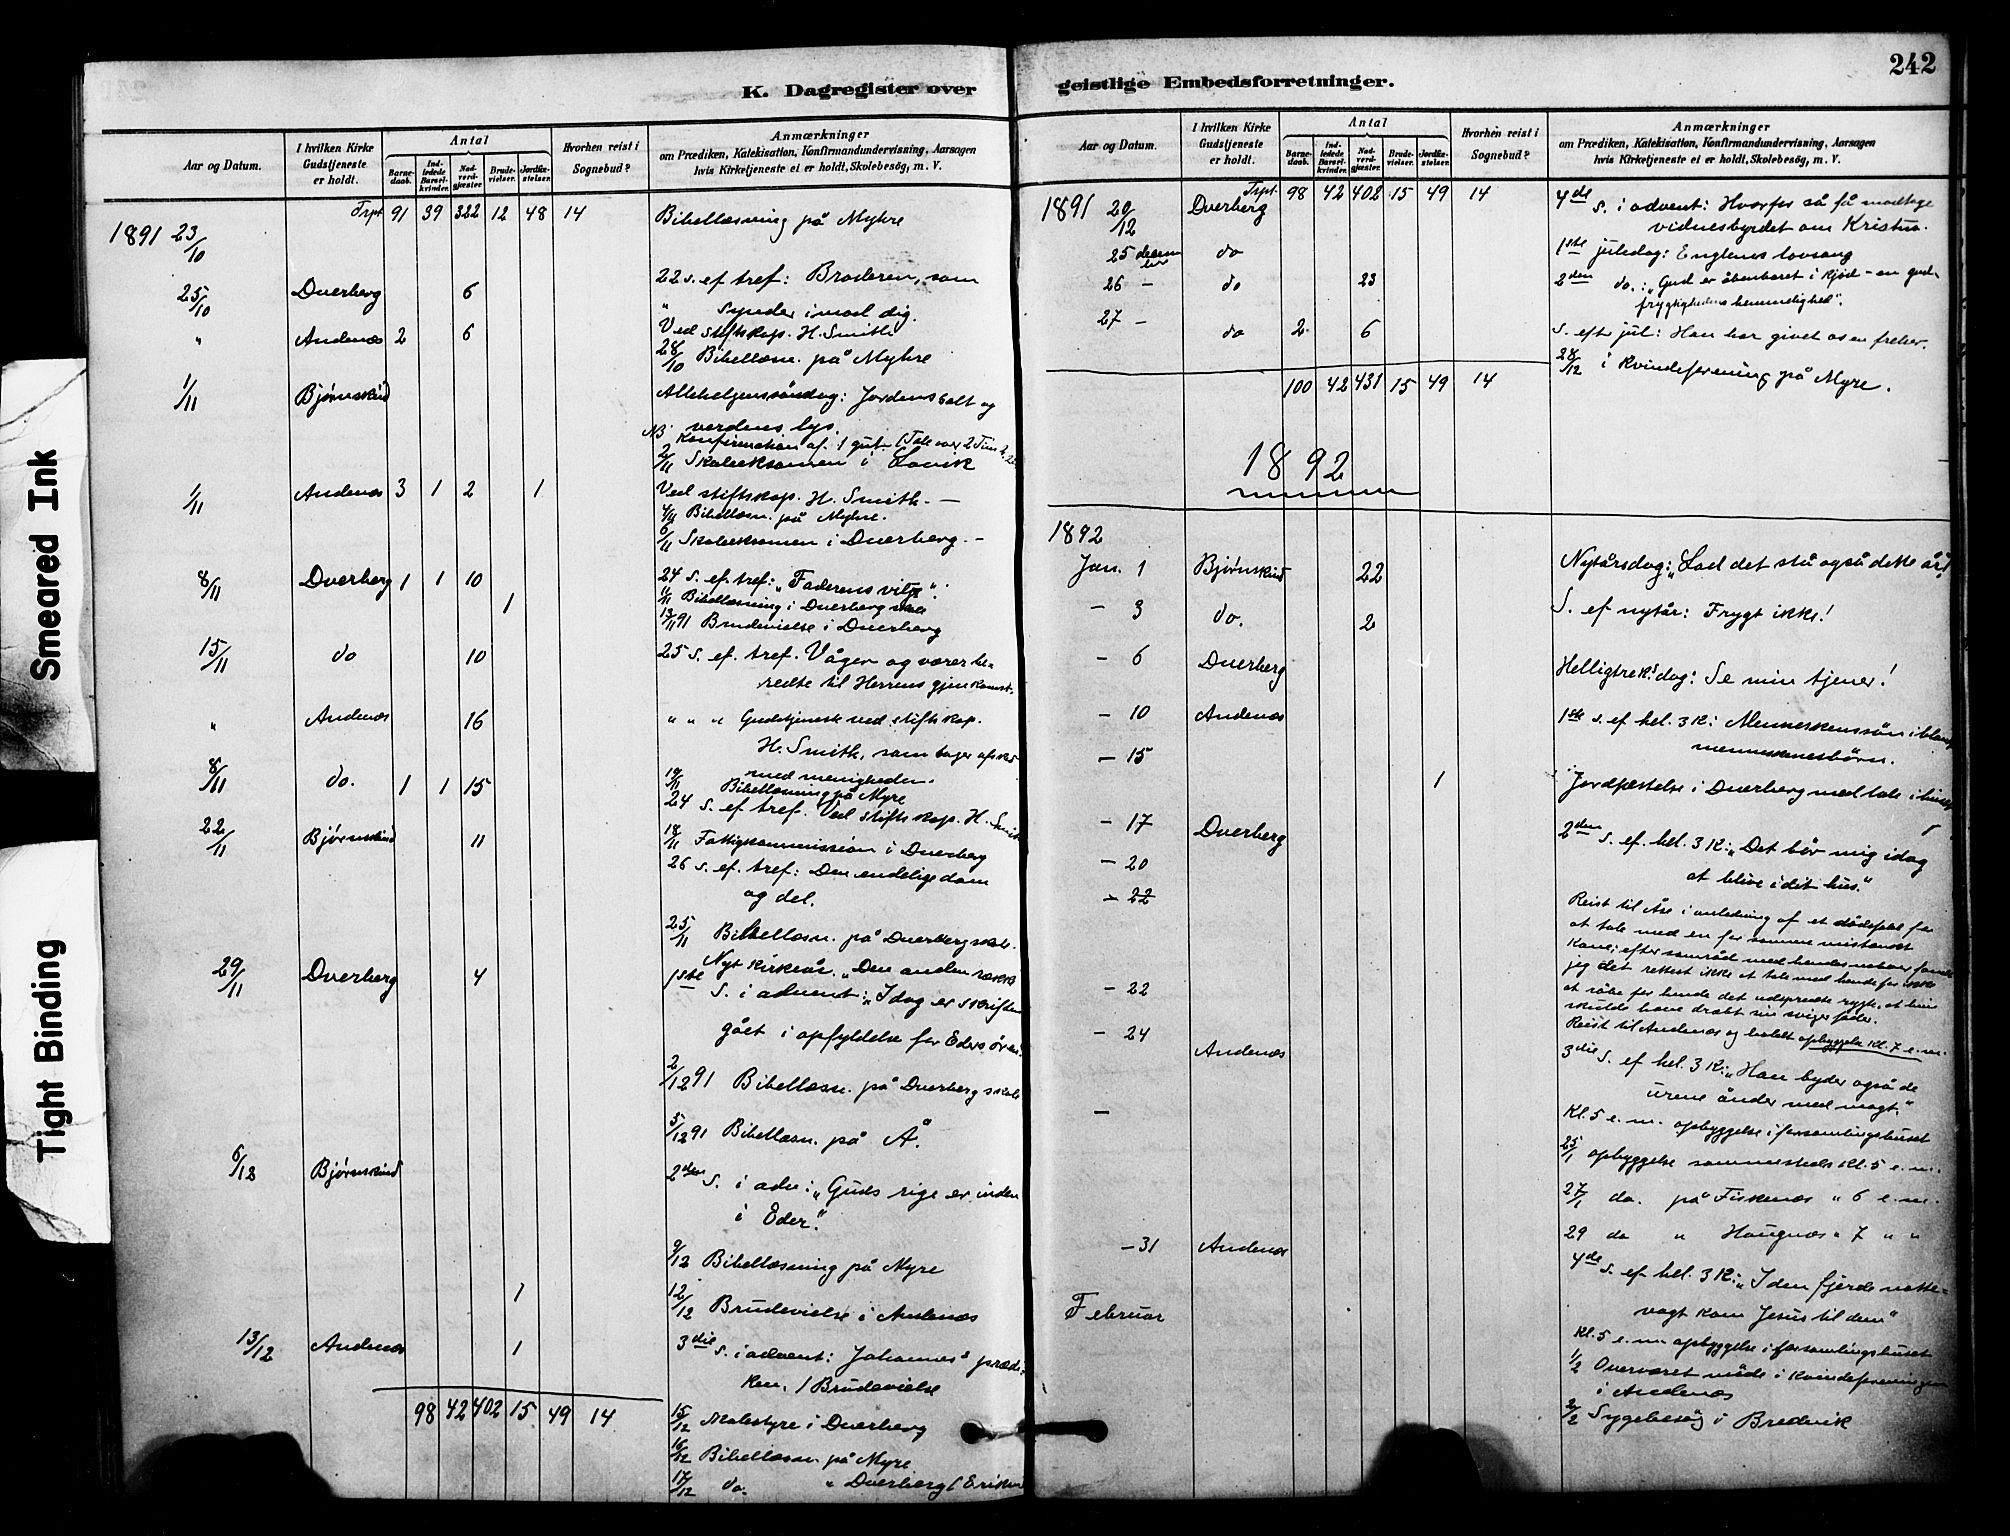 Smeared Ink
Tight Binding
242
K. Dagregister over
geistlige Embedsforretninger.
Aar og Datum.
I hvilken Kirke Gudstjeneste er holdt.
Antal
Barne-daab.
Ind-ledede Barsel-kvinder.
Nad-verd-gjæster.
Brude-vielser.
Jordfæ-stelser.
Hvorhen reist i Sognebud?
Anmærkninger
om Prædiken, Katekisation, Konfirmandundervisning, Aarsagen
hvis Kirketjeneste ei er holdt, Skolebesøg, m. V.
Trpt 91 39 322 12 48 14 Bibellæsning på Myhre
1891 23/10
25/10 Dverberg 6 22 s. ef. tref: Broderen, som
" synder imod dig.
" Andenæs 2 6 Ved stiftskap. H. Smith
28/10 Bibellæsn. på Myhre
1/11 Bjørnskind Allehelgensøndag: Jordens salt og
verdens lys.
NB Konfirmation af 1 gut. (Tale over 2 Tim
2/11 Skoleeksamen i
1/11 Andenæs 3 1 2 1 Ved stiftskap. H. Smith. —
4/11 Bibellæsn. på Myhre.
6/11 Skoleeksamen i Dverberg. —
8/11 Dverberg 1 1 10 24 s. ef. tref: "Faderens vilje".
11/11 Bibellæsning i Dverberg skole
1 13/11 91 Brudevielse i Dverberg
15/11 do 10 25 s. ef. tref. Våger og værer be-
redte til Herrens gjenkomst.
" Andenæs 16 " " " Gudstjeneste ved stiftskap.
H. Smith, som tager afsked
med menigheden.
8/11 do. 1 1 15 19/11 Bibellæsning på Myre
24 s. ef. tref. Ved stiftskap. H. Smith
22/11 Bjørnskind 11 18/11 Fattigkommission i Dverberg
26 s. ef. tref: Den endelige dom
og del.
25/11 Bibellæsn. på Dverberg skole.
29/11 Dverberg 4 Nyt kirkeår. "Den anden række
1ste s. i advent: "Idag er skriften
gået i opfyldelse for Eders øren."
2/12 91 Bibellæsn. på Dverberg skole
5/12 91 Bibellæsn. på Å.
6/12 Bjørnskind 2den s. i adv: "Guds rige er inden
i Eder."
9/12 Bibellæsning på Myre
1 12/12 Brudevielse i Andenæs
13/12 Andenæs 1 3die s. i advent: Johannes's prædi-
ken. 1 Brudevielse
98 42 402 15 49 14 15/12 i Dverberg
16/12 Bibellæsn. på Myre
17/12 do. " Dverberg
Aar og Datum.
I hvilken Kirke Gudstjeneste er holdt.
Antal
Barne-daab.
Ind-ledede Barsel-kvinder.
Nad-verd-gjæster.
Brude-vielser.
Jordfæ-stelser.
Hvorhen reist i Sognebud?
Anmærkninger
om Prædiken, Katekisation, Konfirmandundervisning, Aarsagen
hvis Kirketjeneste ei er holdt, Skolebesøg, m. V.
1891 20/12 Dverberg Trpt. 98 42 402 15 49 14 4de s. i advent: Hvorfor så få modtage
vidnesbyrdet om Kristus.
25 decem ber do 1ste juledag: Englenes lovsang
26 — do 23 2den do.: "Gud er åbenbaret i kjød — en gud-
frygtighedens hemmelighed".
27 — do 2 6 S. efter jul: Han har givet os en frelser.
28/12 i kvindeforening på Myre.
100 42 431 15 49 14
1892
1892
Jan. 1 Bjørnskind 22 Nytårsdag: "Lad det stå også dette år!
— 3 do. 2 S. ef nytår: Frygt ikke!
— 6 Dverberg Helligtrek. dag: Se min tjener!
— 10 Andenæs 1ste s. ef hel. 3 K: Menneskensøn iblandt
menneskenes børn.
— 15 1 Jordfæstelse i Dverberg med tale i huset
— 17 Dverberg 2den s. ef. hel. 3 K: "Det bør mig idag
at blive i dit hus."
— 20
— 22
Reist til Åse i anledning af et dødsfald for
at tale med en for samme mistænkt
kone; efter samråd med hendes naboer fandt
jeg det rettest ikke at tale med hende for ikke
— 22 at råbe for hende det udspredte rygte, at hun
skulde have dræbt sin svigerfader.
— 24 Reist til Andenæs og holdt opbyggelse kl. 7 e.m.
Andenæs 3die s. ef hel. 3 K: "Han byder også de
urene ånder med magt."
— Kl. 5 e.m. opbyggelse i forsamlingshuset
25/1 opbyggelse sammesteds kl. 5 e.m.
27/1 do. på Fiskenæs " 6 e.m.
29 do " Haugnæs " 7 " "
— 31 Andenæs 4de s. ef hel. 3 K: "I den fjerde natte-
vagt kom Jesus til dem"
Februar
Kl. 5 e.m. opbyggelse i forsamlingshuset
1/2 Overværet møde i kvindeforeningen
i Andenæs
2/2 Sygebesøg i Bredvik